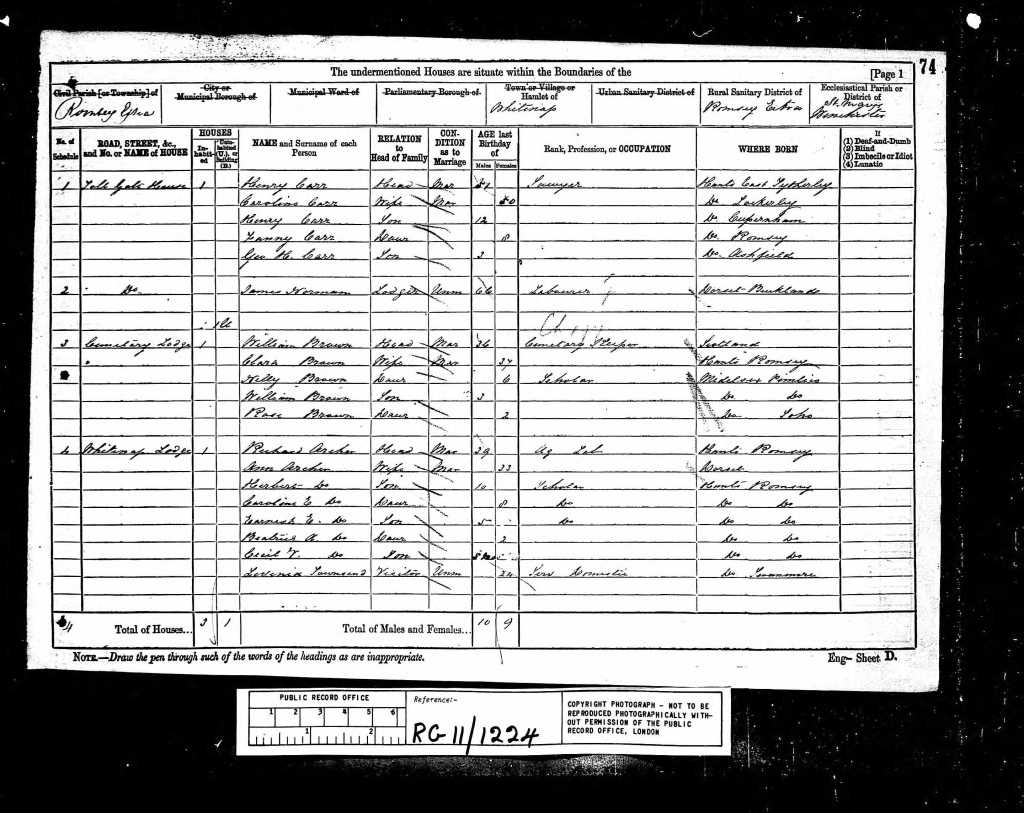 The undermentioned Houses are situate within the Boundaries of the [Page 1 74
Civil Parish [or Township] of City or Municipal Borough of Municipal Ward of Parliamentary Borough of Town or Village or Hamlet of Urban Sanitary District of Rural Sanitary District of Ecclesiastical Parish or District of
Romsey Extra Whitenap Romsey Extra St. Marys
No. of Schedule ROAD, STREET, &c., and No. or NAME of HOUSE HOUSES Inhabited Uninhabited (U.), or Building (B.) NAME and Surname of each Person RELATION to Head of Family CONDITION as to Marriage AGE last Birthday of Males Females Rank, Profession, or OCCUPATION WHERE BORN If (1) Deaf-and-Dumb (2) Blind (3) Imbecile or Idiot (4) Lunatic
1 Toll Gate House 1 Henry Carr Head Mar 51 Sawyer Hants East Tytherley
Caroline Carr Wife Mar 50 Do Lockerley
Henry Carr Son 12 Do Cupernham
Fanny Carr Daur 8 Do Romsey
Geo H. Carr Son 3 Do Ashfield
2 Do James Norman Lodger Unm 66 Labourer Dorset Buckland
1 U
3 Cemetery Lodge 1 William Brown Head Mar 36 Cemetery Keeper Scotland
Clara Brown Wife Mar 37 Hants Romsey
Nelly Brown Daur 6 Scholar Middlesex Pimlico
William Brown Son 3 Do Do
Rose Brown Daur 2 Do Soho
4 Whitenap Lodge 1 Richard Archer Head Mar 39 Ag Lab Hants Romsey
Ann Archer Wife Mar 33 Dorset
Herbert Do Son 10 Scholar Hants Romsey
Caroline E Do Daur 8 Do Do Do
Earnest E. Do Son 5 Do Do Do
Beatrice A. Do Daur 2 Do Do
Cecil Do Son Do Do
Levinia Townsend Visitor Unm 24 Serv Domestic Do Swanmore
4 Total of Houses... 3 1 Total of Males and Females... 10 9
NOTE.—Draw the pen through such of the words of the headings as are inappropriate. Eng– Sheet D.
PUBLIC RECORD OFFICE
1 2 3 4 5 6
1 2
Reference:-
RG 11/1224
COPYRIGHT PHOTOGRAPH - NOT TO BE
REPRODUCED PHOTOGRAPHICALLY WITH-
OUT PERMISSION OF THE PUBLIC
RECORD OFFICE, LONDON